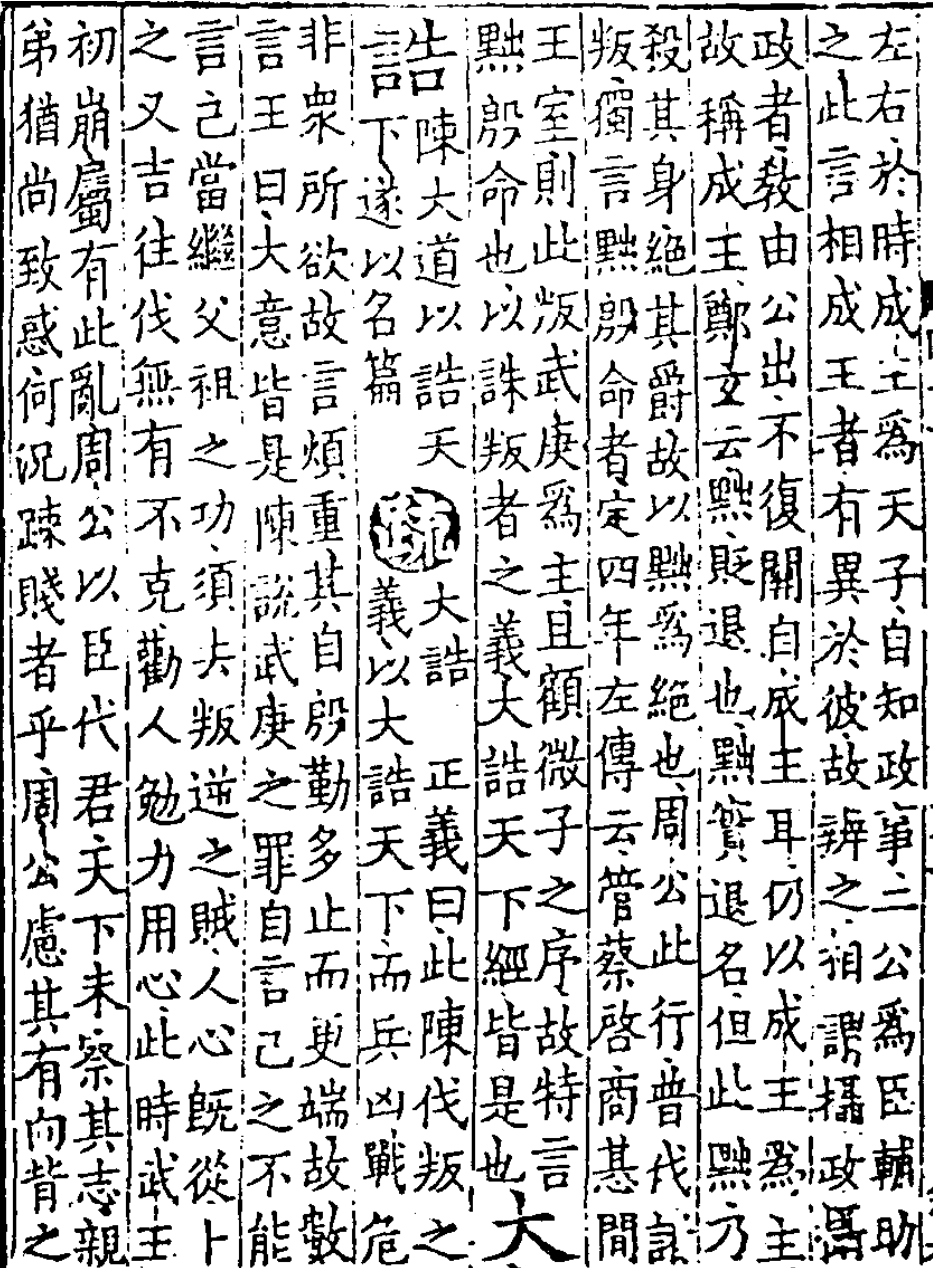 左右於時成王爲天子自知政事二公爲臣輔助
之此言相成王者有異於彼故辨之相謂攝政攝
政者敎由公出不復關自成王耳仍以成王爲主
故稱成王鄭玄云黜貶退也黜實退名但此黜乃
殺其身絕其爵故以黜爲絕也周公此行普伐諸
叛獨言黜殷命者定四年左傳云管蔡啓商惎間
王室則此叛武庚爲主且顧微子之序故特言
黜殷命也以誅叛者之義大誥天下經皆是也
大
誥
陳大道以誥天
下遂以名篇
疏
大誥
正義曰此陳伐叛之
義以大誥天下而兵凶戰危
非眾所欲故言煩重其自殷勤多止而更端故數
言王曰大意皆是陳說武庚之罪自言己之不能
言己當繼父祖之功須去叛逆之賊人心旣從卜
之又吉往伐無有不克勸人勉力用心此時武王
初崩屬有此亂周公以臣代君天下未察其志親
弟猶尚致惑何況踈賤者乎周公慮其有向背之